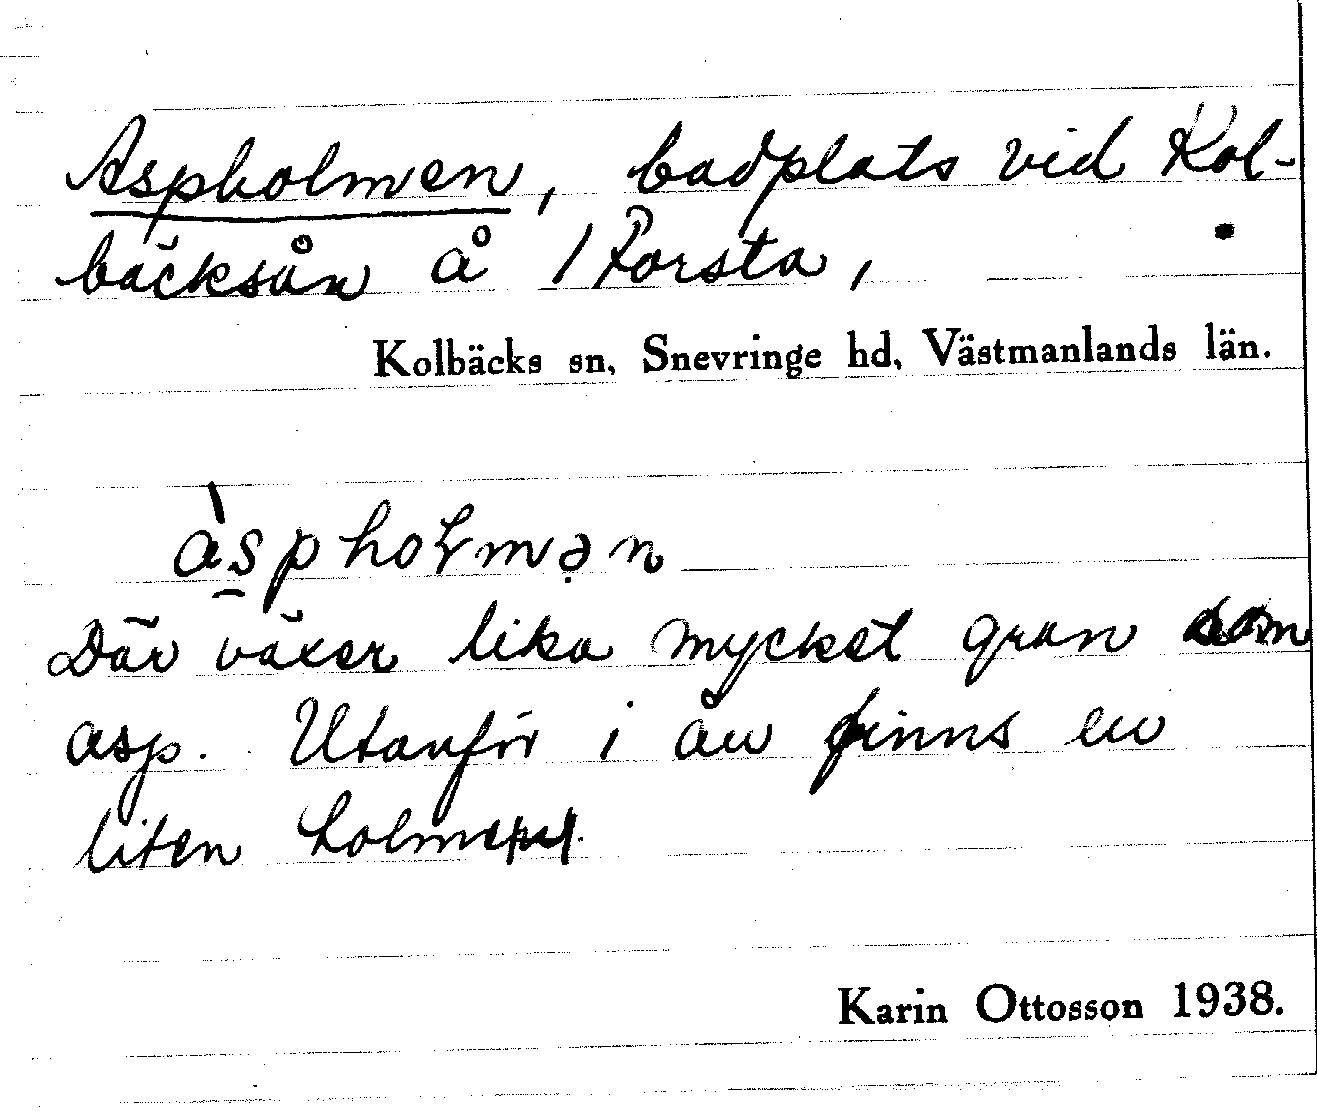 Aspholmen, badplats vid Kol-
bäcksån å 1 Forsta,
Kolbäcks sn, Snevringe hd, Västmanlands län.
àspholmən
Där växer lika mycket gran som
asp. Utanför i ån finns en
liten holme
Karin Ottosson 1938.